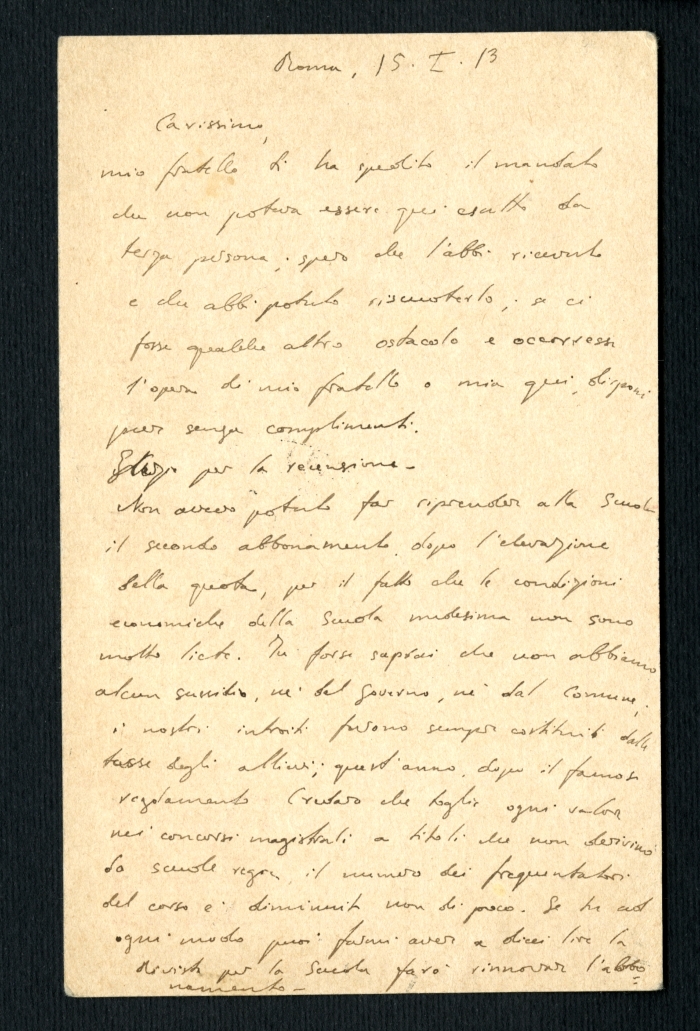 Roma, 15. I. 13
Carissimo,
mio fratello ti ha spedito il mandato
che non poteva essere qui esatto da
terza persona; spero che l'abbi ricevuto
e che abbi potuto riscuoterlo; se ci
fosse qualche altro ostacolo e occorresse
l'opera di mio fratello o mia qui, disponi
pure senza complimenti.
per la recensione -
Non avevo potuto far riprender alla Scuola
il secondo abbonamento, dopo l'elevazione
della quota, per il fatto che le condizioni
economiche della Scuola medesima non sono
molto liete. Tu forse saprai che non abbiamo
alcun sussidio, né dal Governo, né dal Comune;
i nostri introiti furono sempre costituiti dalle
tasse degli allievi; quest'anno, dopo il famoso
regolamento Credaro che toglie ogni valore
nei concorsi magistrali a titoli che non derivino
da scuole regie, il numero dei frequentatori
del corso è diminuito non di poco. Se tu ad
ogni modo puoi farmi aver a dieci lire la
rivista per la Scuola farò rinnovare l'abbo=
namento -